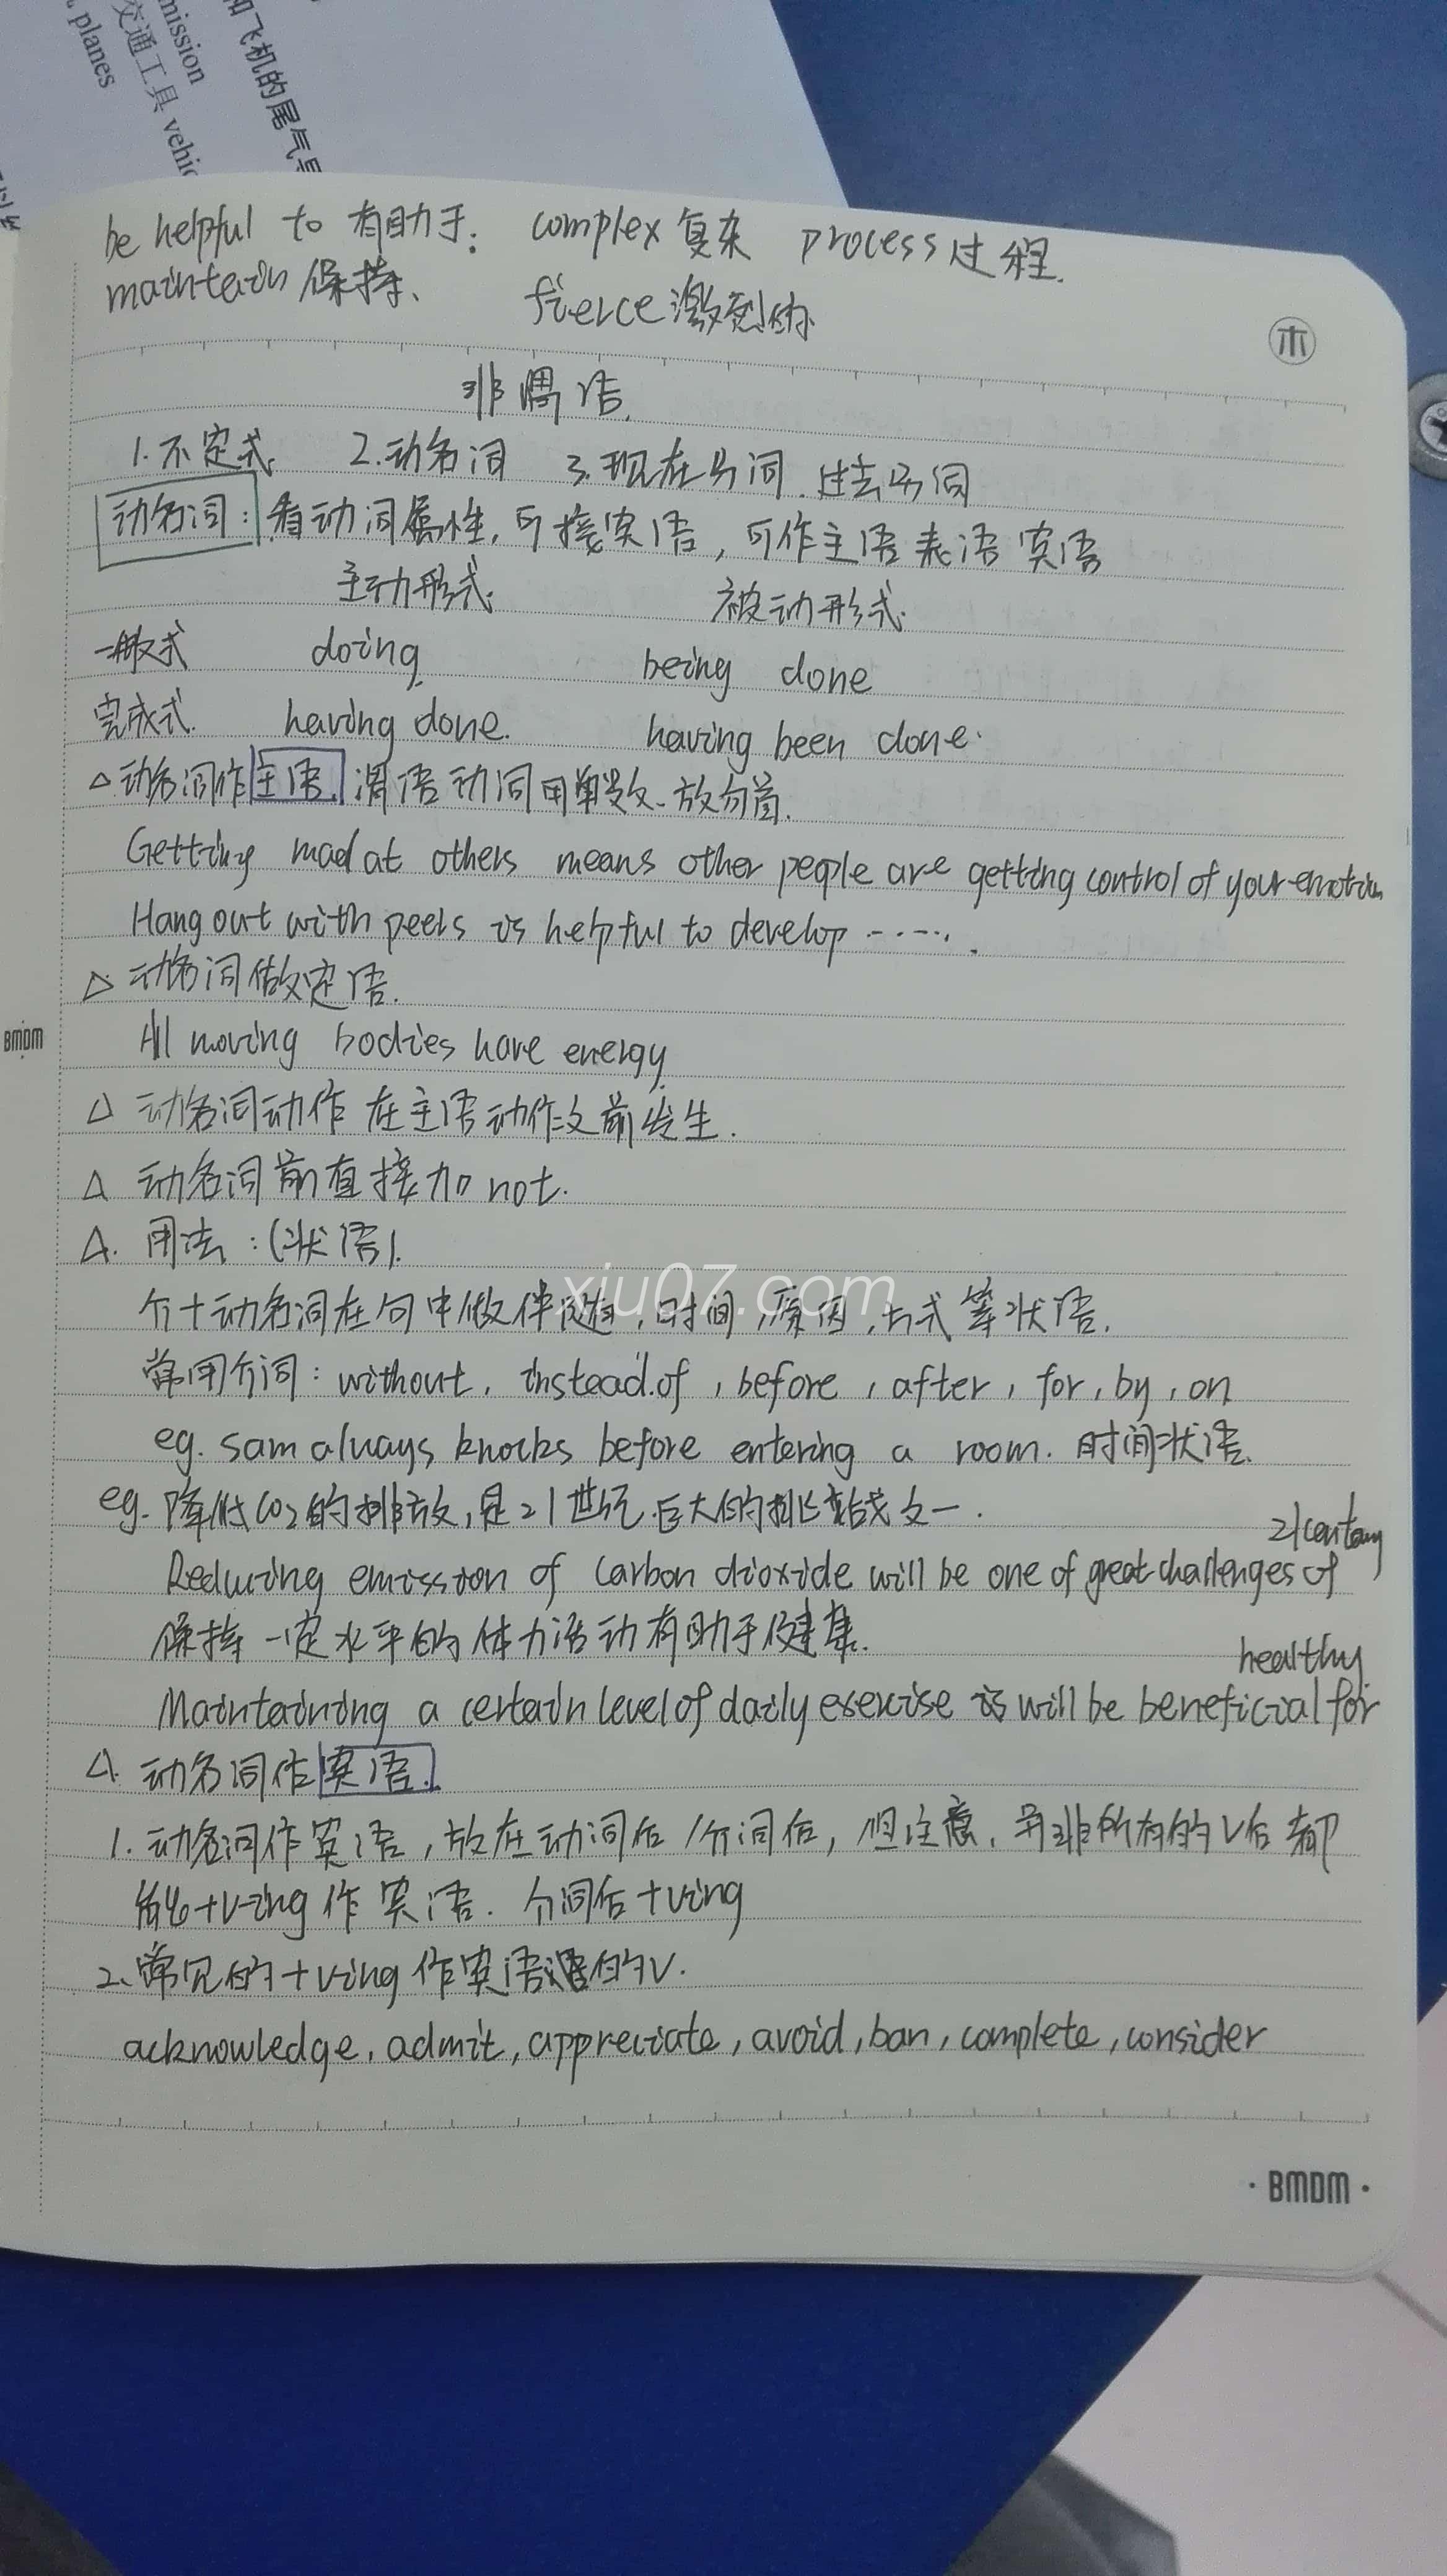 和飞机的尾气
mission
交通工具 vehic
planes
be helpful to 有助于. complex 复杂 process 过程.
maintain 保持、 fierce 激烈的
木
非谓语.
1.不定式 2.动名词 3.现在分词.过去分词
动名词: 有动词属性,可接宾语,可作主语 表语 宾语
主动形式. 被动形式.
一般式 doing. being done
完成式. having done. having been done.
△动名词作主语.谓语动词用单数、放句首.
Getting mad at others means other people are getting control of your emotion
Hang out with peers is helpful to develop ......
△ 动名词做定语.
All moving bodies have energy.
△ 动名词动作在主语动作之前发生.
△ 动名词前直接加 not.
△. 用法:(状语).
介+动名词在句中做伴随,时间,原因,方式等状语.
常用介词: without, instead.of, before, after, for, by, on
eg. sam always knocks before entering a room. 时间状语.
eg. 降低CO2的排放,是21世纪巨大的挑战之一.
21 centuy
Reducing emission of carbon dioxide will be one of great challenges of
保持一定水平的体力活动有助于健康.
healthy.
Maintaining a certain level of daily exercise is will be beneficial for
△. 动名词作宾语.
1. 动名词作宾语,放在动词后/介词后,但注意,并非所有的V后都
能+V-ing作宾语. 介词后+Ving
2、常见的+Ving作宾语的V.
acknowledge, admit, appreciate, avoid, ban, complete, consider
BMDM
· BMDM ·
xiu07.com